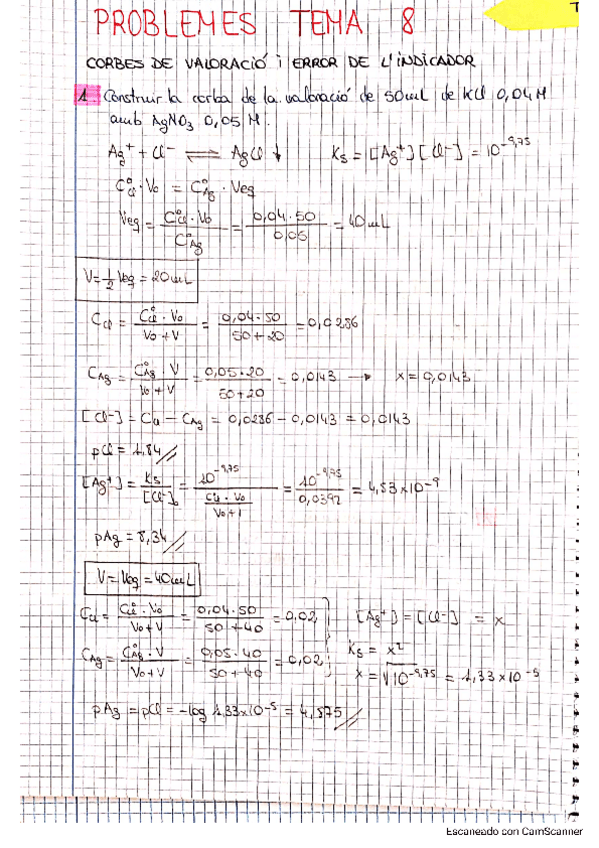 T
PROBLEMES TEMA 8
CORBES DE VALORACIÓ i ERROR DE L'iNDICADOR
1. Construir la corba de la valoració de 50mL de KCl 0,04M
amb AgNO3 0,05 M.
Ag+ + Cl- ⇌ AgCl ↓ Ks = [Ag+][Cl-] = 10^-9,75
C°Cl · Vo = C°Ag · Veq
Veq = C°Cl · Vo / C°Ag = 0,04·50 / 0,05 = 40mL
V = 1/2 Veq = 20mL
CCl = C°Cl · Vo / Vo + V = 0,04·50 / 50+20 = 0,0286
CAg = C°Ag · V / Vo + V = 0,05·20 / 50+20 = 0,0143 → x = 0,0143
[Cl-] = CCl - CAg = 0,0286 - 0,0143 = 0,0143
pCl = 1,84
[Ag+] = Ks / [Cl-]o = 10^-9,75 / CCl · Vo / Vo+1 = 10^-9,75 / 0,0392 = 4,53x10^-9
pAg = 8,34
V = Veq = 40mL
CCl = C°Cl · Vo / Vo+V = 0,04·50 / 50+40 = 0,02 [Ag+] = [Cl-] = x
CAg = C°Ag · V / Vo+V = 0,05·40 / 50+40 = 0,02 Ks = x²
x = √10^-9,75 = 1,33x10^-5
pAg = pCl = -log 1,33x10^-5 = 4,875
Escaneado con CamScanner